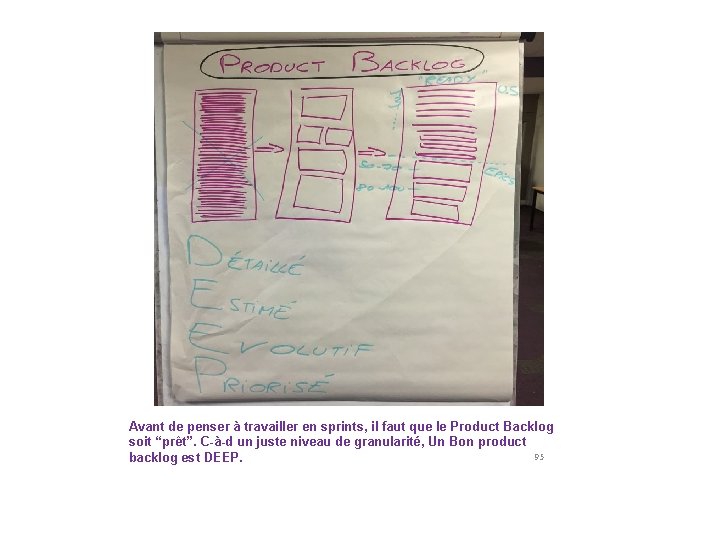 PRODUCT BACKLOG
"READY"
U.S
50-70
EPICS
80-100
DÉTAILLÉ
ESTIMÉ
EVOLUTIF
PRIORISÉ
Avant de penser à travailler en sprints, il faut que le Product Backlog
soit “prêt”. C-à-d un juste niveau de granularité, Un Bon product
backlog est DEEP.
95